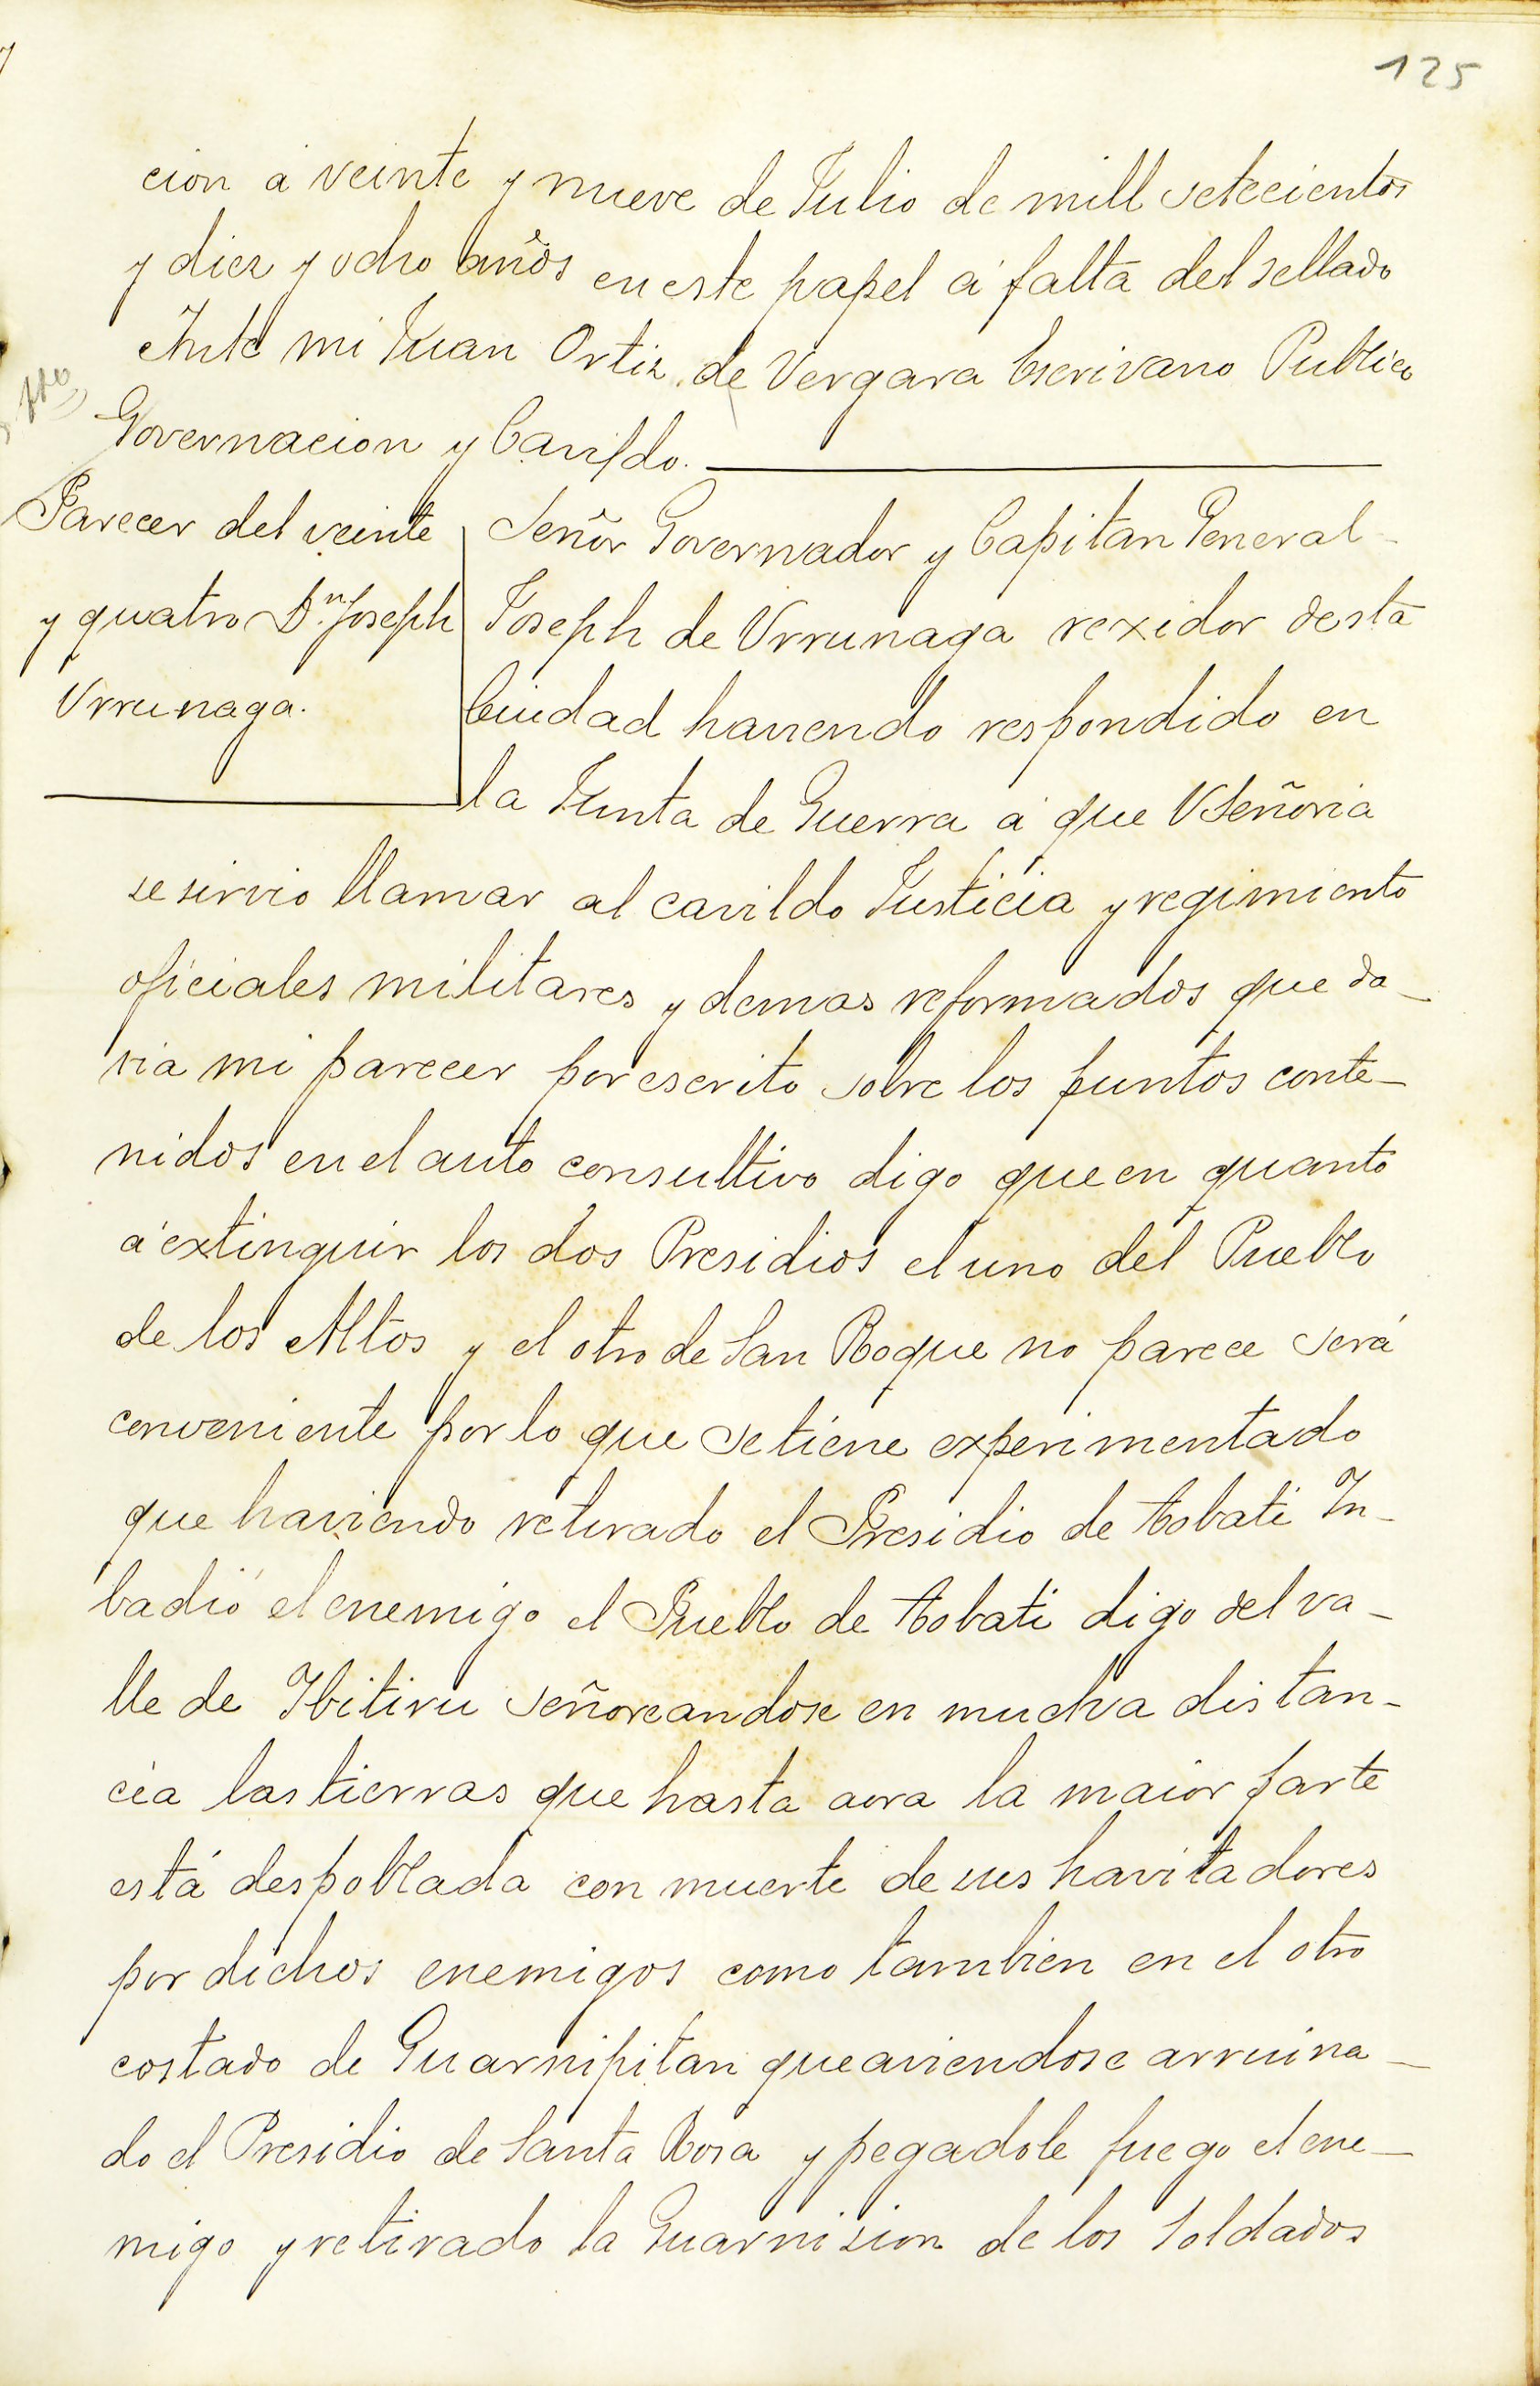 125
cion á veinte y nueve de Julio de mill setecientos
y diez y ocho años en este papel á falta del sellado
Ante mi Juan Ortiz de Vergara Escrivano Publico
Governacion y Cavildo.
Parecer del veinte
y quatro Dn. Joseph
Urrunaga.
Señor Governador y Capitan General
Joseph de Urrunaga rexidor desta
Ciudad haviendo respondido en
la Junta de Guerra á que VSeñoria
se sirvio llamar al cavildo Justicia y regimiento
oficiales militares y demas reformados que da-
ria mi parecer por escrito sobre los puntos conte-
nidos en el auto consultivo digo que en quanto
á extinguir los dos Presidios el uno del Pueblo
de los Altos y el otro de San Roque no parece será
conveniente por lo que se tiene experimentado
que haviendo retirado el Presidio de tobati In-
badió el enemigo el Pueblo de tobati digo del va-
lle de Ibitiru señoreandose en mucha distan-
cia las tierras que hasta aora la maior parte
está despoblada con muerte de sus havitadores
por dichos enemigos como tambien en el otro
costado de Guarnipitan que aviendose arruina-
do el Presidio de Santa Rosa y pegadole fuego el ene-
migo y retirado la Guarnision de los Soldados